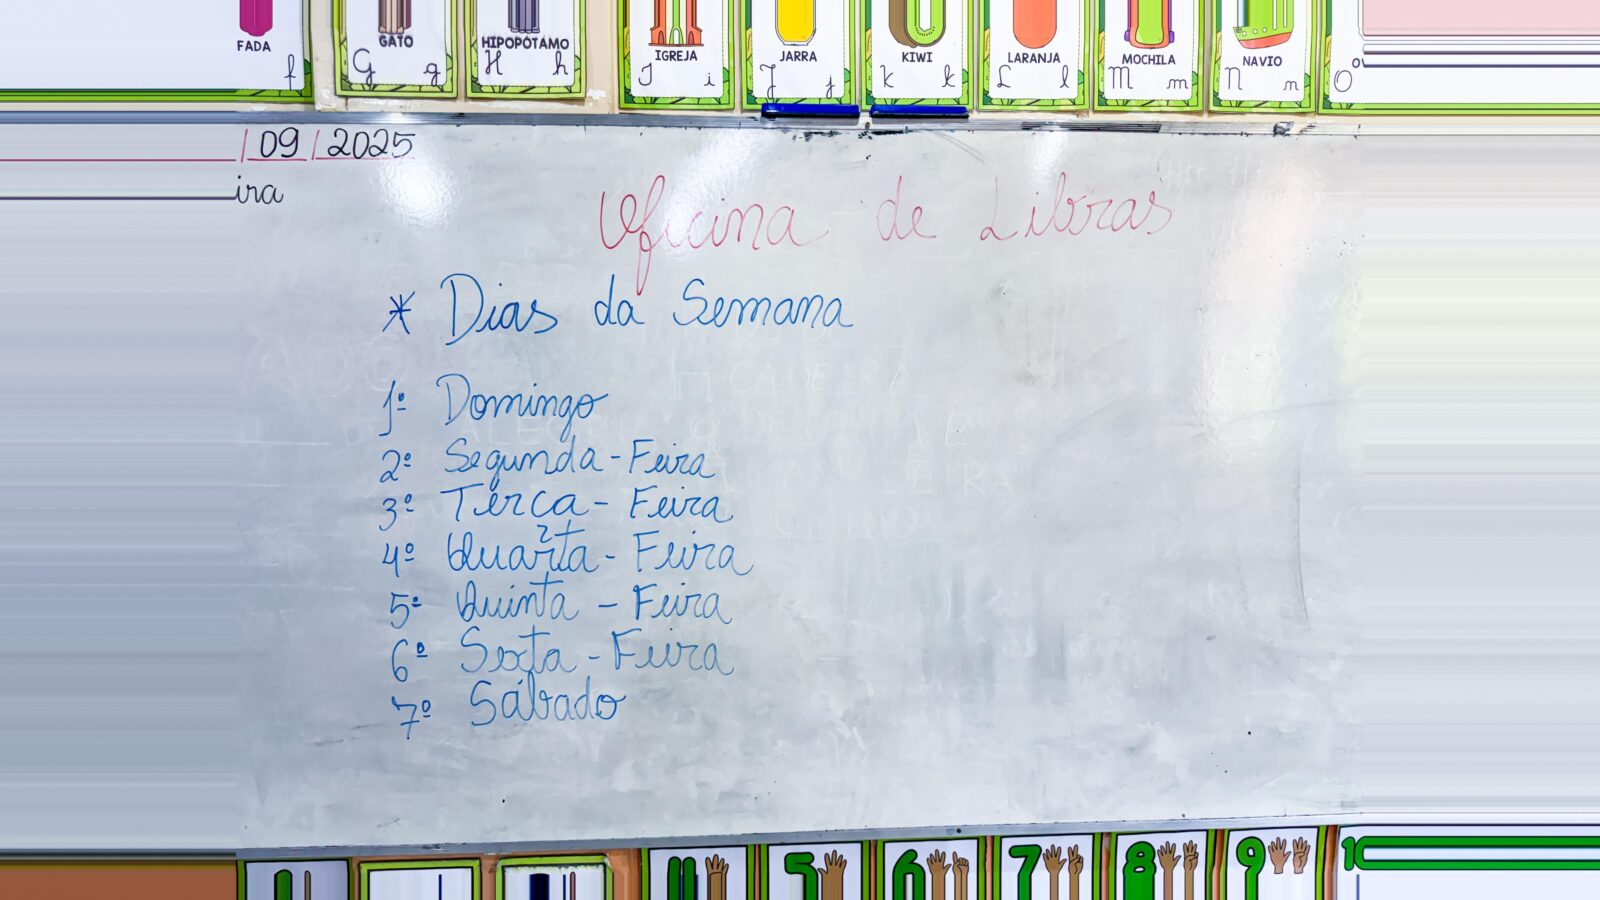 FADA
f
GATO
G g
HIPOPÓTAMO
H h
IGREJA
I i
JARRA
J j
KIWI
K k
LARANJA
L l
MOCHILA
M m
NAVIO
N n
O
/09/2025
ira
Oficina de Libras
* Dias da Semana
1º Domingo
2º Segunda-Feira
3º Terca-Feira
4º Quarta-Feira
5º Quinta-Feira
6º Sexta-Feira
7º Sábado
5
6
7
8
9